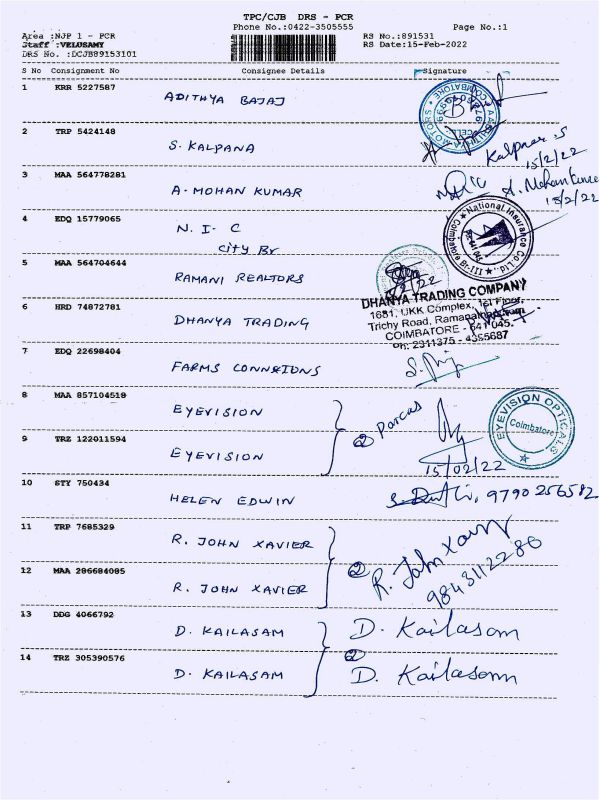 TPC/CJB DRS - PCR
Phone No.:0422-3505555 Page No.:1
Area :NJP 1 - PCR RS No.:891531
Staff :VELUSAMY RS Date:15-Feb-2022
DRS No. :DCJB89153101
S No Consignment No Consignee Details Signature
1 KRR 5227587 ADITHYA BAJAJ
2 TRP 5424148 S. KALPANA Kalpana S
15/2/22
3 MAA 564778281 A. MOHAN KUMAR A. Mohan Kumar
15/2/22
4 EDQ 15779065 N. I- C
City Br
National Insurance Co. Ltd.
Coimbatore Br-III
5 MAA 564704644 RAMANI REALTORS
6 HRD 74872781 DHANYA TRADING
DHANYA TRADING COMPANY
1681, UKK Complex, 1st Floor,
Trichy Road, Ramanathapuram
COIMBATORE - 641 045.
Ph: 2311375 - 4355687
7 EDQ 22698404 FARMS CONNXIONS
8 MAA 857104518 EYEVISION
② Parcas
EYEVISION OPTICALS
Coimbatore
9 TRZ 122011594 EYEVISION
15/02/22
10 STY 750434 HELEN EDWIN 9790256582
11 TRP 7685329 R. JOHN XAVIER
② R. John Xavier
9843112286
12 MAA 286684085 R. JOHN XAVIER
13 DDG 4066792 D. KAILASAM D. Kailasam
②
14 TRZ 305390576 D. KAILASAM D. Kailasam